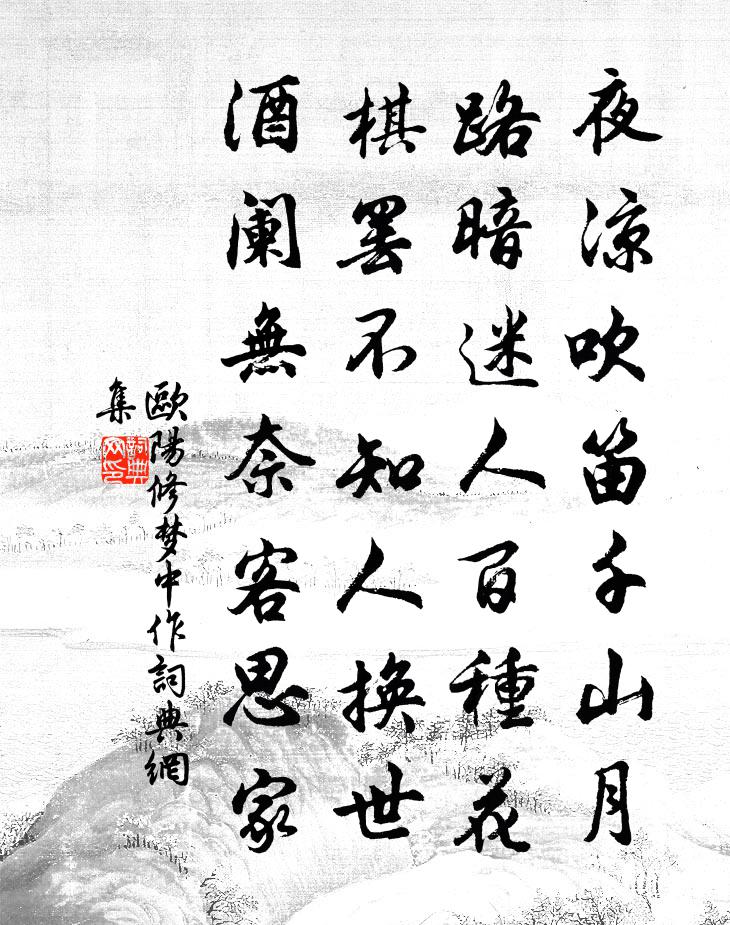 夜涼吹笛千山月
路暗迷人百種花
棋罢不知人換世
酒阑無奈客思家
歐陽修梦中作詞典網
集
詞典
网印